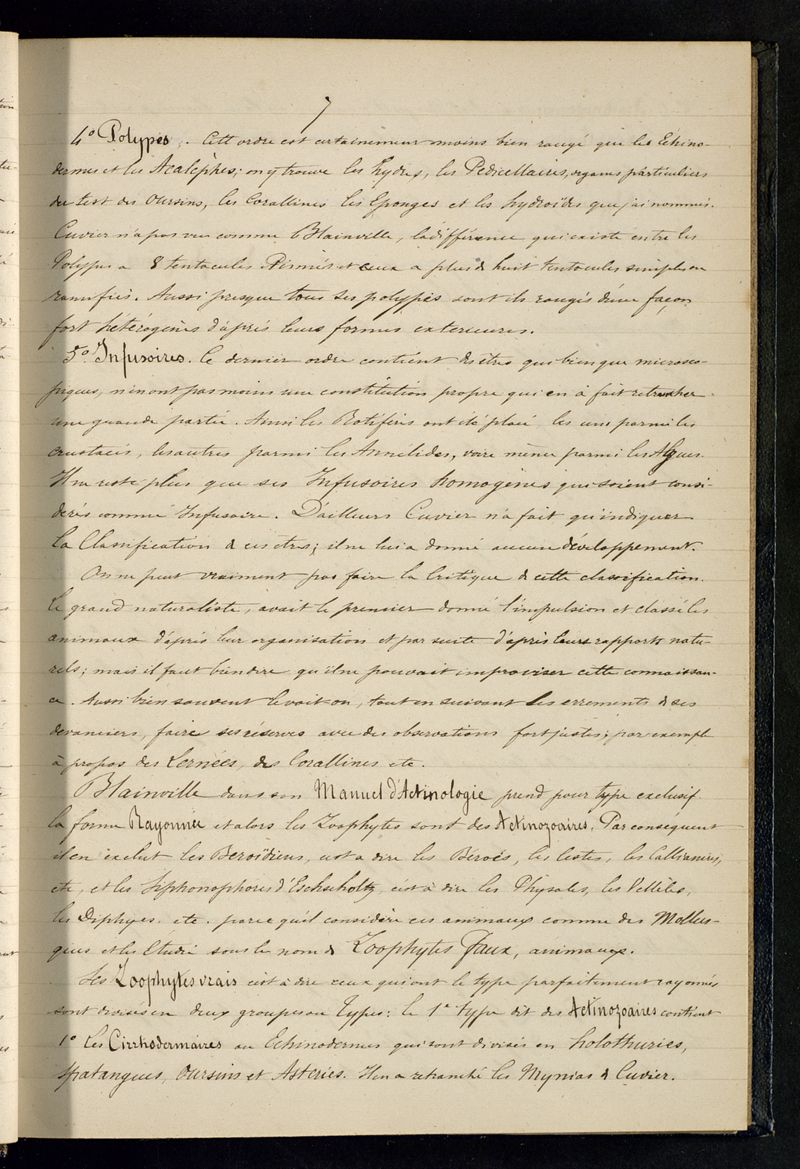 7
4º Polypes. Cett ordre est certainement moins bien rangé que les Echino-
dermes et les Acalèphes; on y trouve les hydres, les Pedicellaires, organes particuliers
du test des Oursins, les Corallines les Eponges et les hydroïdes que j'ai nommés.
Cuvier n'a pas vu comme Blainville, la différence qui existe entre les
Polypes a 8 tentacules et ceux a plus de huit tentacules simples ou
ramifiés. Aussi presque tous ses polypes sont ils rangés d'une façon
fort hétérogènes d'après leurs formes exterieures.
5º Infusoires. Ce dernier ordre contient des êtres qui bien que microsco-
piques, n'en ont pas moins une constitution propre qui en à fait retrancher
une grande partie. Ainsi les Rotifères ont été placé, les uns parmi les
crustacés, les autres parmi les Annélides, voire même parmi les Algues.
Il ne reste plus que ses Infusoires homogènes qui soient consi-
derés comme Infusoire. D'ailleurs Cuvier n'a fait qu'indiquer
la Classification de ces êtres; il ne lui a donné aucun développement.
On ne peut vraiment pas faire la Critique de cette classification.
Le grand naturaliste, avait le premier donné l'impulsion et classé les
animaux d'après leur organisation et par suite d'après leurs rapports natu-
rels; mais il faut bien dire qu'il ne pouvait improviser cette connaissan-
ce. Aussi bien souvent le voit on, tout en suivant les errements de ses
devanciers, faire ses réserves avec des observations fort justes; par exempl
à propos des Lernées, des Corallines etc.
Blainville dans son Manuel d'Actinologie prend pour type exclusif
la forme Rayonnée et alors les Zoophytes sont des Actinozoaires. Par consequent
il en exclut les Beroïdiens, c'est a dire les Béroés, les Cestes, les Callianires,
etc, et les Siphonophores d'Eschscholtz, c'est à dire les Physales, les Vellèles,
les Diphyes. etc. parce qu'il considère ces animaux comme des Mollus-
ques et les Etudie sous le nom de Zoophytes Faux, animaux.
Les Zoophytes vrais c'est à dire ceux qui ont le type parfaitement rayonnés
sont divisés en deux groupes ou Types: le 1e type dit des Actinozoaires contient
1º Les Cirrhodermaires ou Echinodermes qui sont divisés en holothuries,
Spatangues, Oursins et Asteries. Il en a retranché les Mynias de Cuvier.